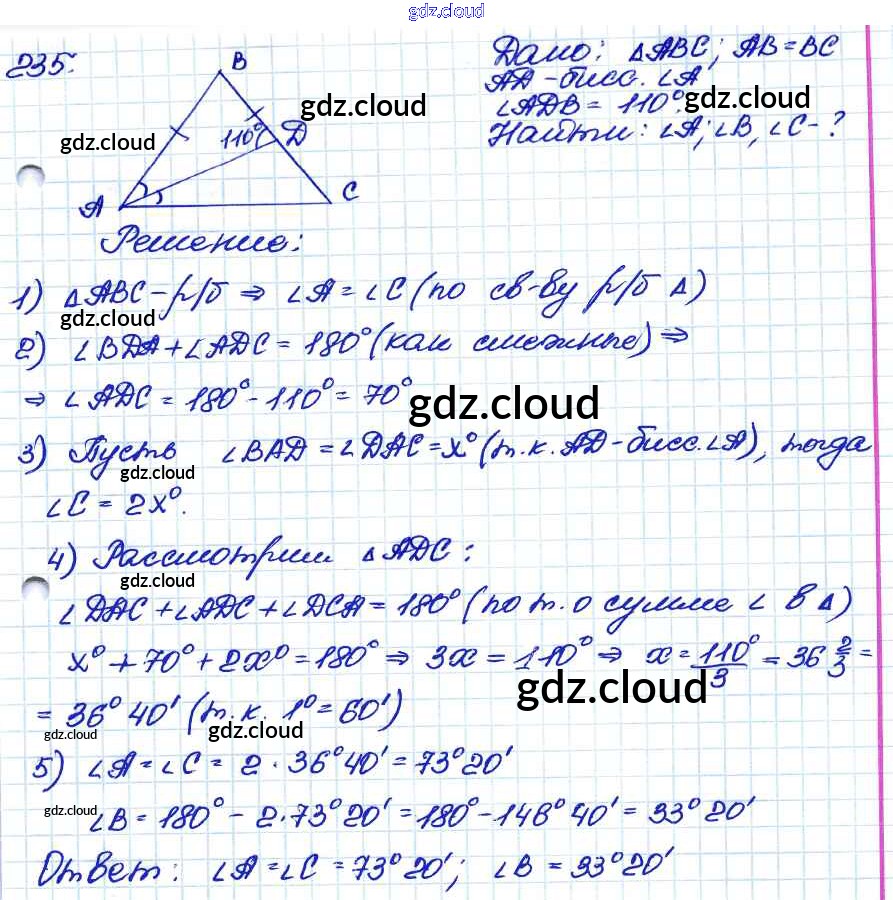 gdz.cloud
235.
B
Дано: △ABC; AB=BC
AD-бисс. ∠A
gdz.cloud
gdz.cloud
∠ADB = 110°.
110° D
gdz.cloud
Найти: ∠A; ∠B, ∠C-?
A C
Решение:
1) △ABC-р/б ⇒ ∠A=∠C (по св-ву р/б △)
gdz.cloud
2) ∠BDA+∠ADC = 180° (как смежные) ⇒
⇒ ∠ADC = 180°-110° = 70°
gdz.cloud
3) Пусть ∠BAD = ∠DAC = x° (т.к. AD-бисс. ∠A), тогда
gdz.cloud
∠C = 2x°.
4) Рассмотрим △ADC:
gdz.cloud
∠DAC+∠ADC+∠DCA=180° (по т. о сумме ∠ в △)
x°+70°+2x°=180° ⇒ 3x=110° ⇒ x=110°/3 = 36 2/3 =
gdz.cloud
= 36° 40' (т.к. 1°=60')
gdz.cloud
gdz.cloud
5) ∠A=∠C = 2·36°40' = 73°20'
gdz.cloud
∠B=180° - 2·73°20' = 180°-146°40' = 33°20'
Ответ: ∠A=∠C=73°20'; ∠B = 33°20'